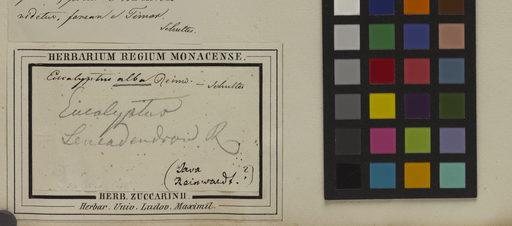 Schultes.
HERBARIUM REGIUM MONACENSE.
Eucalyptus alba Reinw. — Schultes
Eucalyptus
Leucadendroid. R
(Java
Reinwardt. ?)
HERB. ZUCCARINII
Herbar. Univ. Ludov. Maximil.